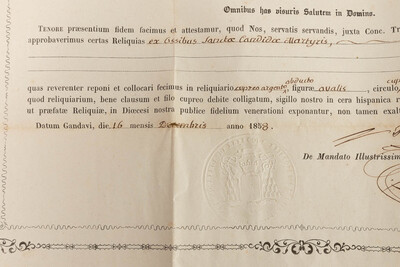 Omnibus has visuris Salutem in Domino.
TENORE præsentium fidem facimus et attestamur, quod Nos, servatis servandis, juxta Conc. Tr
approbaverimus certas Reliquias ex Ossibus Sanctæ Candidæ Martyris,
abducto
quas reverenter reponi et collocari fecimus in reliquiario cupreo argento figuræ ovalis, circulo
quod reliquiarium, bene clausum et filo cupreo debite colligatum, sigillo nostro in cera hispanica r
ut præfatæ Reliquiæ, in Diœcesi nostra publice fidelium venerationi exponantur, non tamen exalt
Datum Gandavi, die 16 mensis Decembris anno 1853.
De Mandato Illustrissim